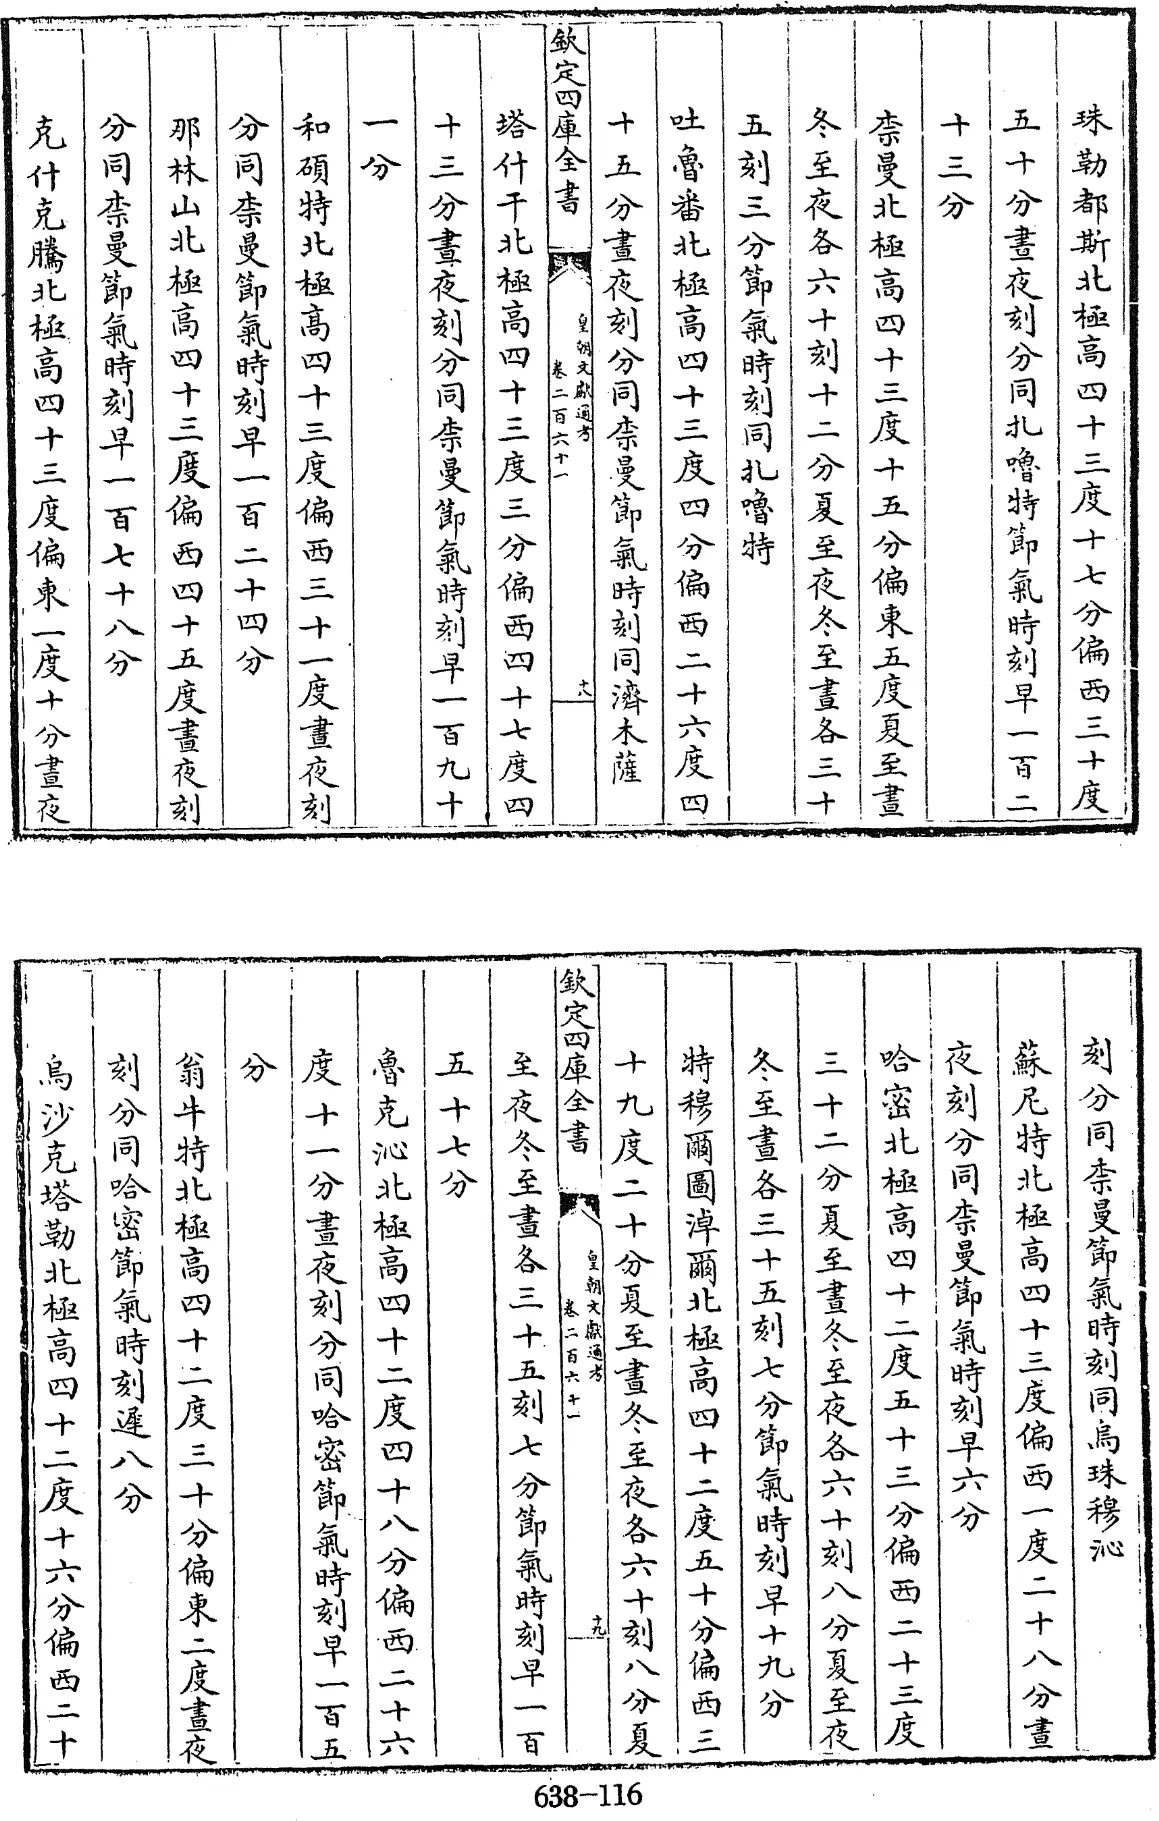 珠勒都斯北極高四十三度十七分偏西三十度
五十分晝夜刻分同扎嚕特節氣時刻早一百二
十三分
柰曼北極高四十三度十五分偏東五度夏至晝
冬至夜各六十刻十二分夏至夜冬至晝各三十
五刻三分節氣時刻同扎嚕特
吐魯番北極高四十三度四分偏西二十六度四
十五分晝夜刻分同柰曼節氣時刻同濟木薩
欽定四庫全書
皇朝文獻通考
卷二百六十一
十八
塔什干北極高四十三度三分偏西四十七度四
十三分晝夜刻分同柰曼節氣時刻早一百九十
一分
和碩特北極高四十三度偏西三十一度晝夜刻
分同柰曼節氣時刻早一百二十四分
那林山北極高四十三度偏西四十五度晝夜刻
分同柰曼節氣時刻早一百七十八分
克什克騰北極高四十三度偏東一度十分晝夜
刻分同柰曼節氣時刻同烏珠穆沁
蘇尼特北極高四十三度偏西一度二十八分晝
夜刻分同柰曼節氣時刻早六分
哈密北極高四十二度五十三分偏西二十三度
三十二分夏至晝冬至夜各六十刻八分夏至夜
冬至晝各三十五刻七分節氣時刻早十九分
特穆爾圖淖爾北極高四十二度五十分偏西三
十九度二十分夏至晝冬至夜各六十刻八分夏
欽定四庫全書
皇朝文獻通考
卷二百六十一
十九
至夜冬至晝各三十五刻七分節氣時刻早一百
五十七分
魯克沁北極高四十二度四十八分偏西二十六
度十一分晝夜刻分同哈密節氣時刻早一百五
分
翁牛特北極高四十二度三十分偏東二度晝夜
刻分同哈密節氣時刻遲八分
烏沙克塔勒北極高四十二度十六分偏西二十
638-116